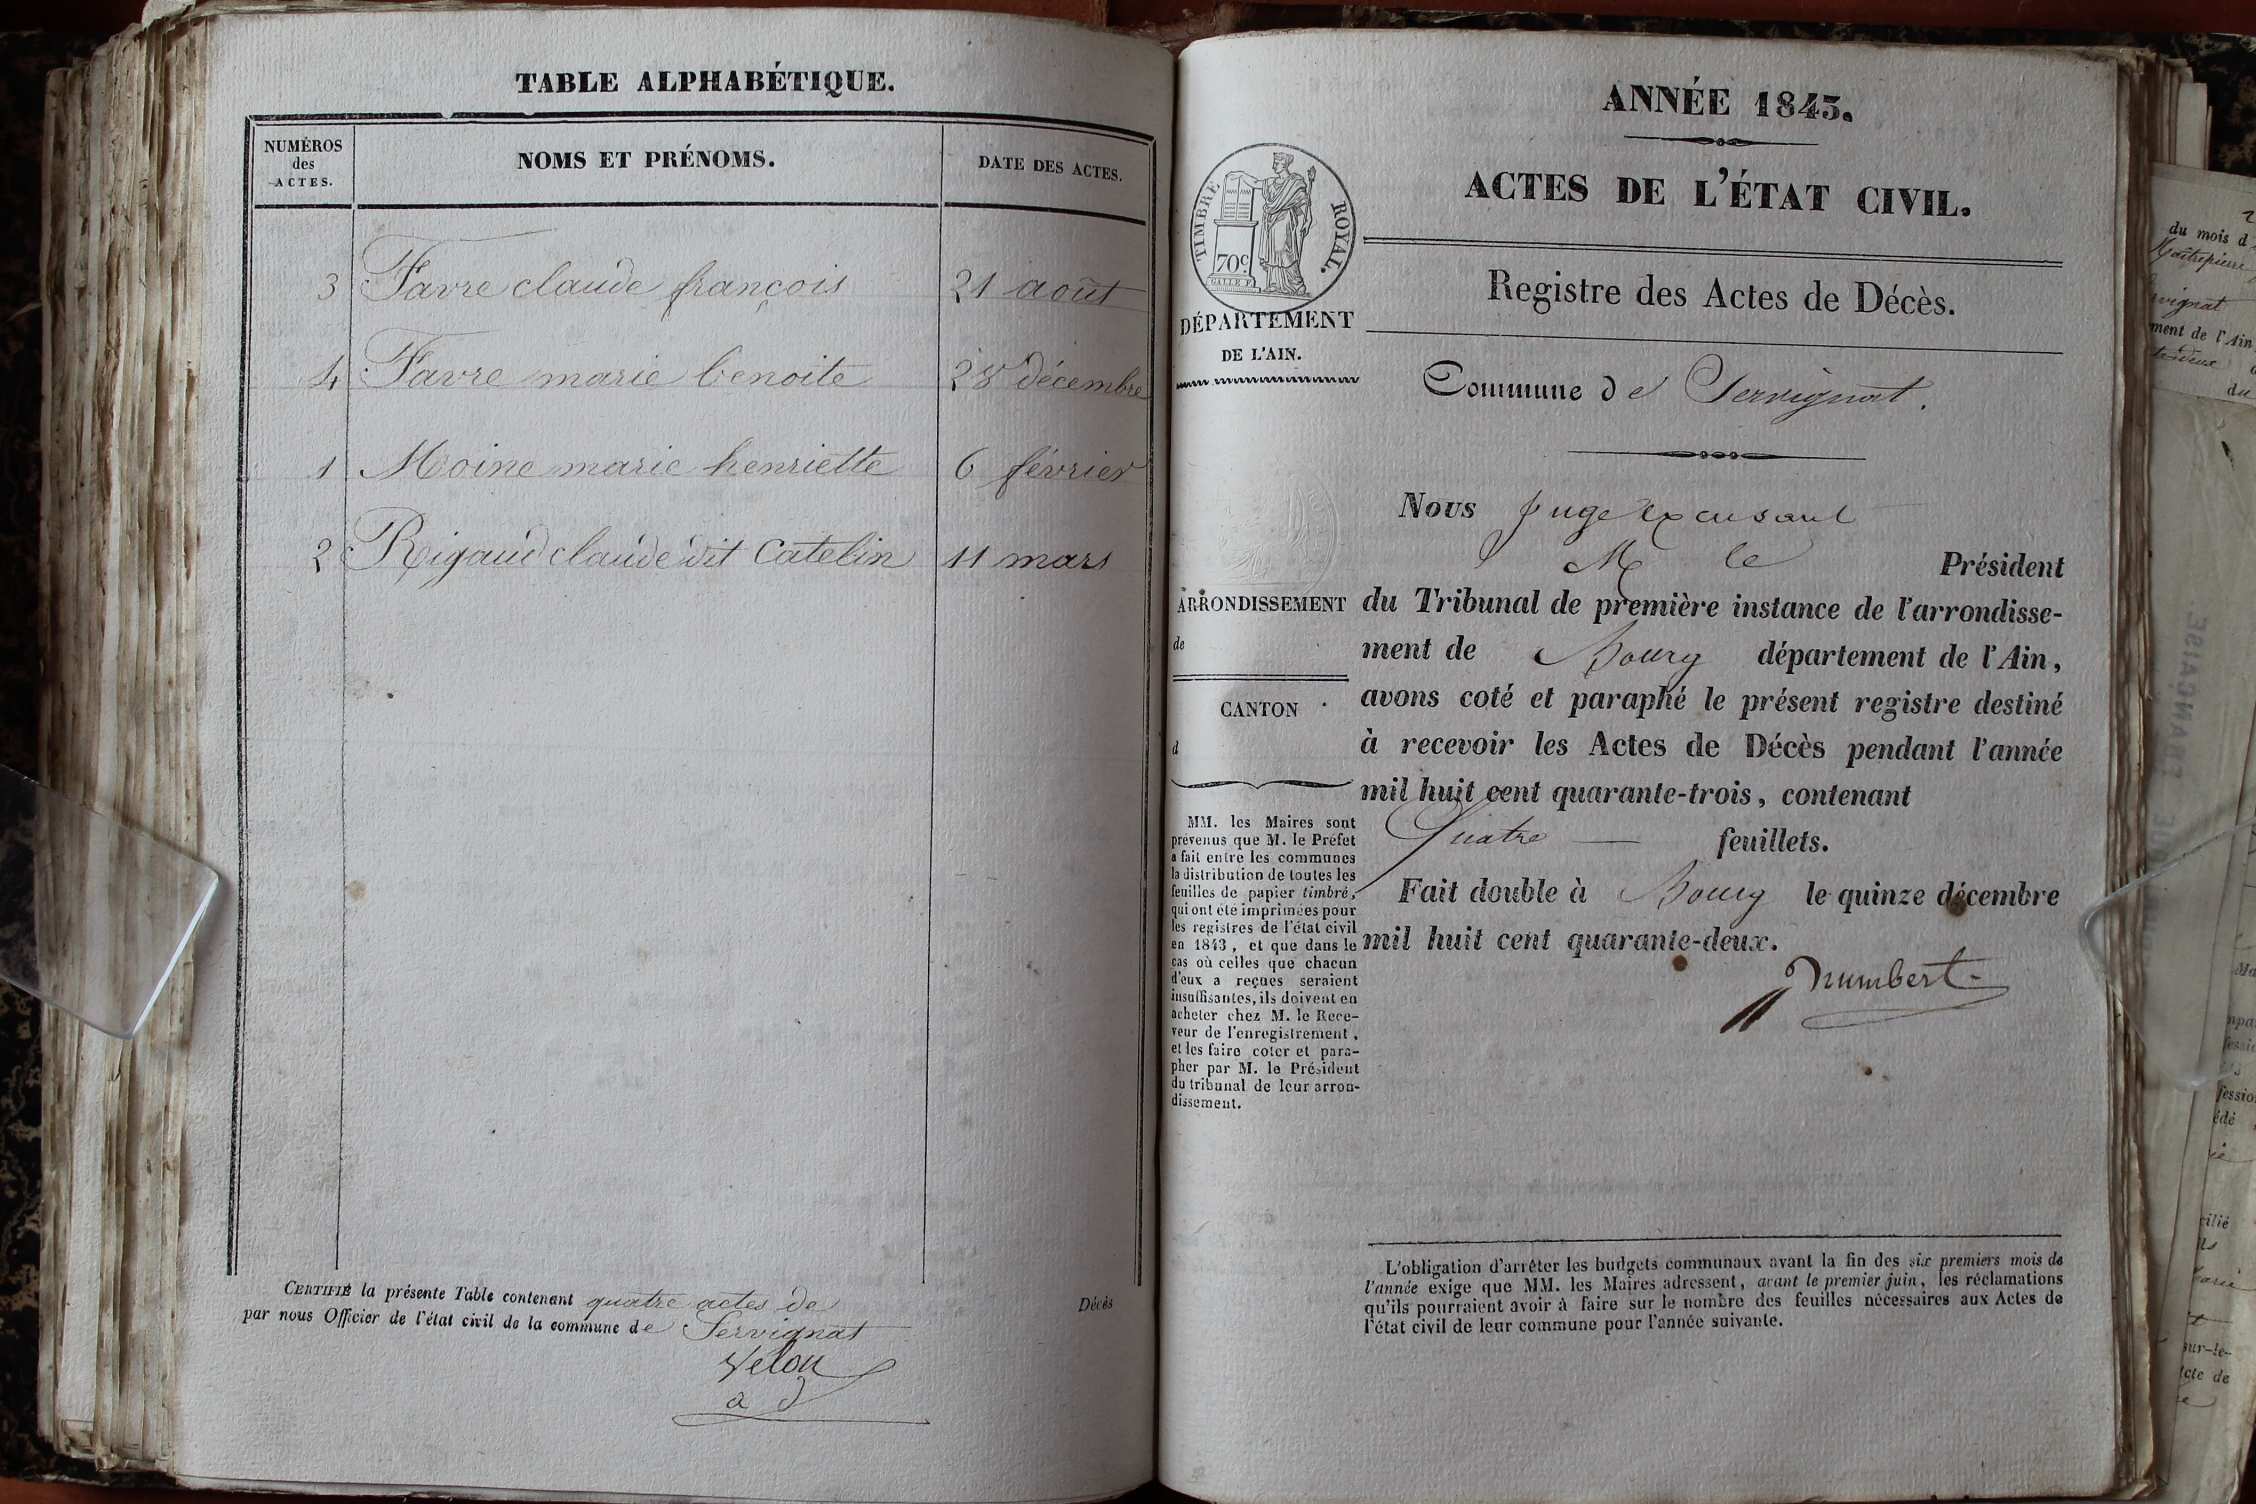 TABLE ALPHABÉTIQUE.
NUMÉROS
des
ACTES.
NOMS ET PRÉNOMS.
DATE DES ACTES.
3 Favre claude françois 21 août
4 Favre marie benoite 28 décembre
1 Moine marie henriette 6 février
2 Rigaud claude dit Catelin 11 mars
CERTIFIÉ la présente Table contenant quatre actes de Décès
par nous Officier de l'état civil de la commune de Servignat
Velon
a d
ANNÉE 1843.
ACTES DE L'ÉTAT CIVIL.
TIMBRE ROYAL.
70c
DÉPARTEMENT
DE L'AIN.
Registre des Actes de Décès.
Commune de Servignat.
ARRONDISSEMENT
de
CANTON
d
MM. les Maires sont
prévenus que M. le Préfet
a fait entre les communes
la distribution de toutes les
feuilles de papier timbré,
qui ont été imprimées pour
les registres de l'état civil
en 1843, et que dans le
cas où celles que chacun
d'eux a reçues seraient
insuffisantes, ils doivent en
acheter chez M. le Rece-
veur de l'enregistrement,
et les faire coter et para-
pher par M. le Président
du tribunal de leur arron-
dissement.
Nous juge excusant
M le Président
du Tribunal de première instance de l'arrondisse-
ment de Bourg département de l'Ain,
avons coté et paraphé le présent registre destiné
à recevoir les Actes de Décès pendant l'année
mil huit cent quarante-trois, contenant
Quatre feuillets.
Fait double à Bourg le quinze décembre
mil huit cent quarante-deux.
L'obligation d'arrêter les budgets communaux avant la fin des six premiers mois de
l'année exige que MM. les Maires adressent, avant le premier juin, les réclamations
qu'ils pourraient avoir à faire sur le nombre des feuilles nécessaires aux Actes de
l'état civil de leur commune pour l'année suivante.
du mois d
ment de l'Ain
du
sur-le-